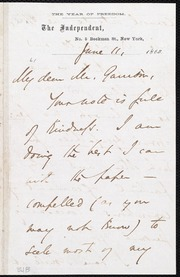 THE YEAR OF FREEDOM.
The Independent,
No. 5 Beekman St., New York,
June 11,
My dear Mr. Garrison,
Your note is full
of kindness. I am
doing the best I can
with the paper —
compelled (as you
may not know) to
seek most of my